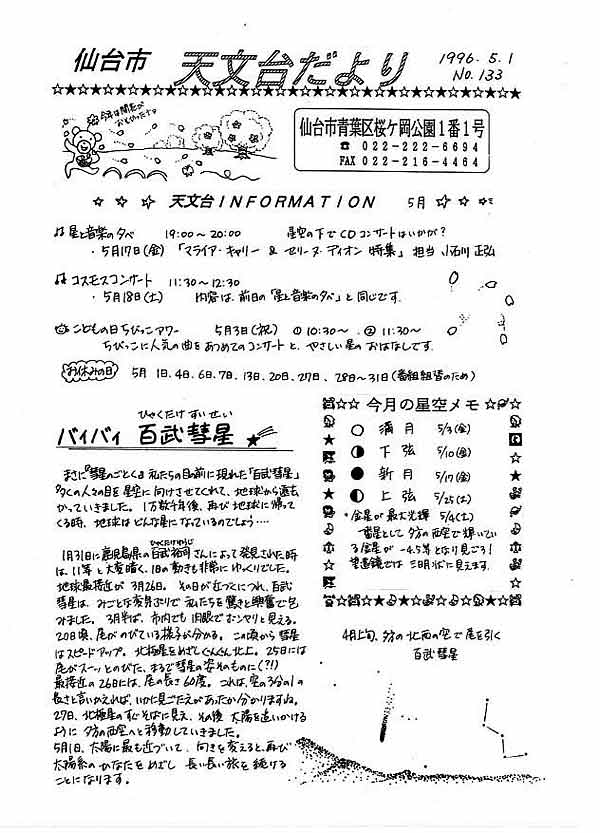 仙台市 天文台だより 1996. 5. 1
No. 133
今年は開花が
おそかったナァ
仙台市青葉区桜ケ岡公園1番1号
☎ 022-222-6694
FAX 022-216-4464
☆ ☆ ☆ 天文台INFORMATION 5月 ☆ ☆ ☆
♫ 星と音楽の夕べ 19:00～20:00 星空の下でCDコンサートはいかが?
・5月17日(金) 「マライア・キャリー & セリーヌ・ディオン 特集」 担当 小石川 正弘
♪ コスモスコンサート 11:30～12:30
・5月18日(土) 内容は、前日の「星と音楽の夕べ」と同じです.
こどもの日ちびっこアワー 5月3日(祝) ①10:30～ . ②11:30～
ちびっこに人気の曲をあつめてのコンサートと、やさしい星のおはなしです.
お休みの日 5月 1日.4日.6日.7日.13日.20日.27日. 28日～31日(番組組替のため)
ひゃくたけ すいせい
バイバイ 百武彗星
まさに『彗星のごとく』私たちの目の前に現れた「百武彗星」
多くの人々の目を星空に向けさせてくれて、地球から遠去
かっていきました。1万数千年後、再び地球に帰って
くる時、地球は どんな星になっているのでしょう‥‥
ひゃくたけゆうじ
1月31日に鹿児島県の百武裕司さんによって発見された時
は、11等と大変暗く、1日の動きも非常にゆっくりでした。
地球最接近が 3月26日。 その日が近づくにつれ、百武
彗星は、みごとな変身ぶりで 私たちを驚きと興奮で包
みました。 3月半ば、市内でも肉眼でボンヤリと見える。
20日頃、尾がのびている様子が分かる。 この頃から彗星
はスピードアップ。 北極星をめざしてぐんぐん北上。25日には
尾がスーッとのびた、まるで彗星の姿そのものに(?!)
最接近の26日には、尾の長さ60度。 これは、空の3分の1の
長さと言いかえれば、いかに見ごたえがあったか分かりますね。
27日、北極星のすぐそばに見え、その後 太陽を追いかける
ように 夕方の西空へと移動していきました。
5月1日、太陽に最も近づいて、向きを変えると、再び
太陽系のかなたをめざし 長い長い旅を続ける
ことになります。
☆☆ 今月の星空メモ ☆
○ 満月 5/3(金)
◑ 下弦 5/10(金)
● 新月 5/17(金)
◐ 上弦 5/25(土)
*金星が最大光輝 5/4(土)
一番星として夕方の西空で輝いてい
る金星が -4.5等となり見ごろ!
望遠鏡では 三日月状に見えます.
4月上旬、夕方の北西の空で尾を引く
百武彗星